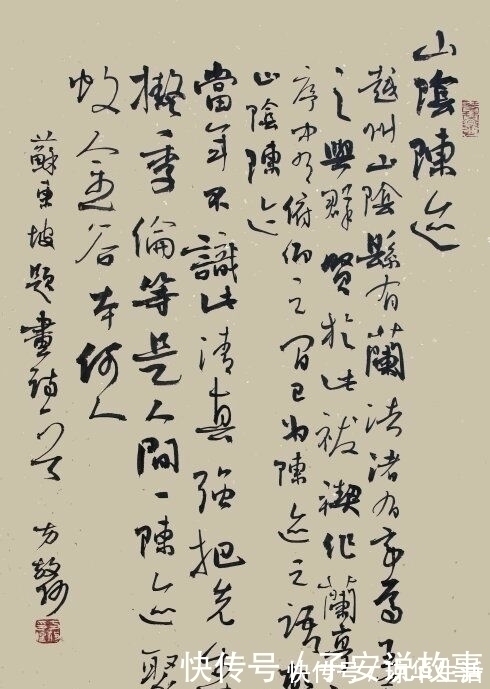 山陰陳迹
越州山陰縣有蘭渚渚有亭焉王
之與群賢於此祓禊作蘭亭
序中有俯仰之間已為陳迹之語故
山陰陳迹
當年不識此清真強把先生
擬季倫等是人間一陳迹聚
蚊金谷本何人
蘇東坡題畫詩一首 方
快传号 / 子安说故事
快传号